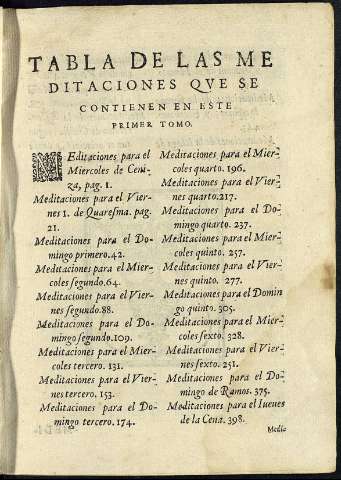 TABLA DE LAS ME
DITACIONES QVE SE
CONTIENEN EN ESTE
PRIMER TOMO.
MEditaciones para el
Miercoles de Ceni-
za, pag. 1.
Meditaciones para el Vier-
nes 1. de Quaresma. pag.
21.
Meditaciones para el Do-
mingo primero.42.
Meditaciones para el Mier-
coles segundo.64.
Meditaciones para el Vier-
nes segundo.88.
Meditaciones para el Do-
mingo segundo.109.
Meditaciones para el Mier-
coles tercero. 131.
Meditaciones para el Vier-
nes tercero. 153.
Meditaciones para el Do-
mingo tercero. 174.
Meditaciones para el Mier-
coles quarto. 196.
Meditaciones para el Vier-
nes quarto.217.
Meditaciones para el Do-
mingo quarto. 237.
Meditaciones para el Mier-
coles quinto. 257.
Meditaciones para el Vier-
nes quinto. 277.
Meditaciones para el Domin
go quinto. 305.
Meditaciones para el Mier-
coles sexto. 328.
Meditaciones para el Vier-
nes sexto. 251.
Meditaciones para el Do-
mingo de Ramos. 375.
Meditaciones para el Iueues
de la Cena. 398.
Medi-